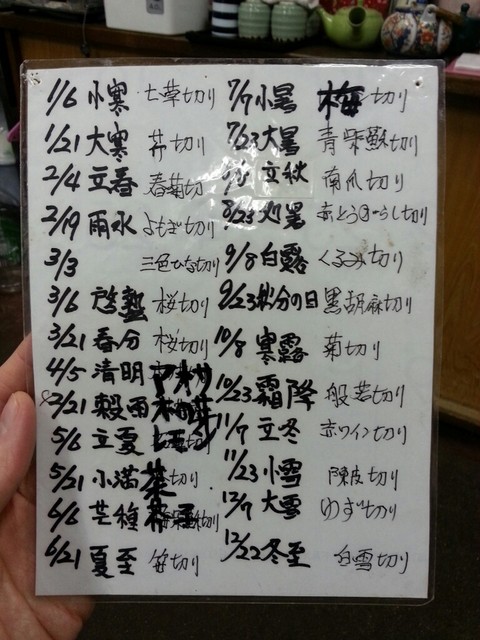 1/6 小寒 七草切り
1/21 大寒 芹切り
2/4 立春 春菊切
2/19 雨水 よもぎ切り
3/3 三色ひな切り
3/6 啓蟄 桜切り
3/21 春分 桜切り
4/5 清明
穀雨
5/6 立夏
5/21 小満 茶切り
6/6 芒種
6/21 夏至 笹切り
7/7 小暑 梅切り
7/23 大暑 青紫蘇切り
立秋 南瓜切り
8/23 処暑 赤とうがらし切り
9/8 白露 くるみ切り
9/23 秋分の日 黒胡麻切り
10/8 寒露 菊切り
10/23 霜降 般若切り
11/7 立冬 赤ワイン切り
11/23 小雪 陳皮切り
12/7 大雪 ゆず切り
12/22 冬至 白雪切り